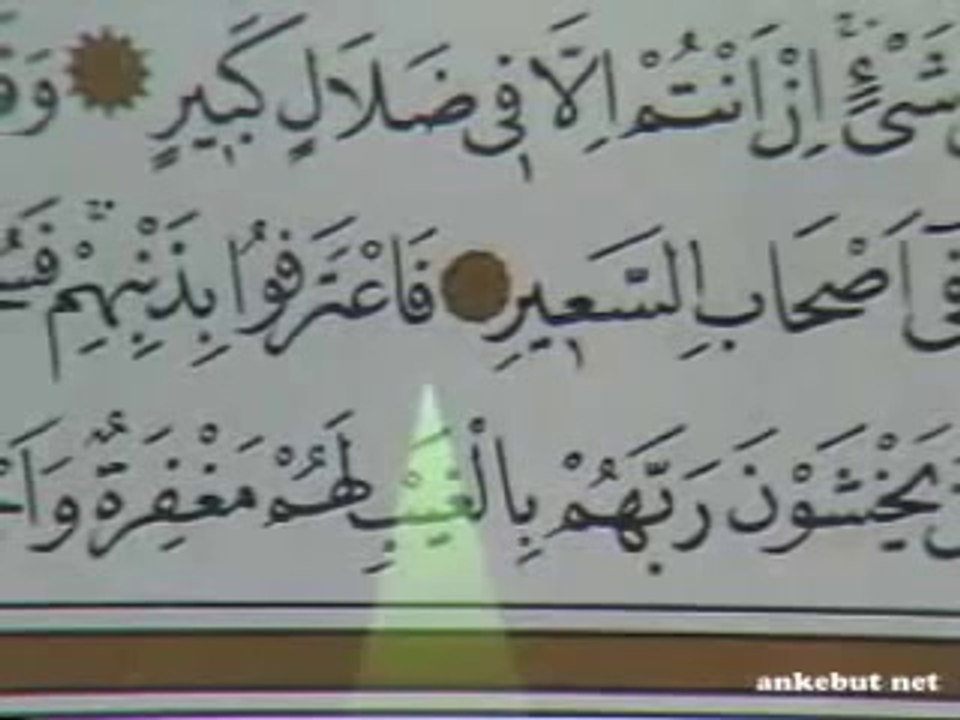 شَىْءٍ اِنْ اَنْتُمْ اِلَّا فٖى ضَلَالٍ كَبٖيرٍ
اَصْحَابِ السَّعٖيرِ فَاعْتَرَفُوا بِذَنْبِهِمْ
يَخْشَوْنَ رَبَّهُمْ بِالْغَيْبِ لَهُمْ مَغْفِرَةٌ
ankebut net